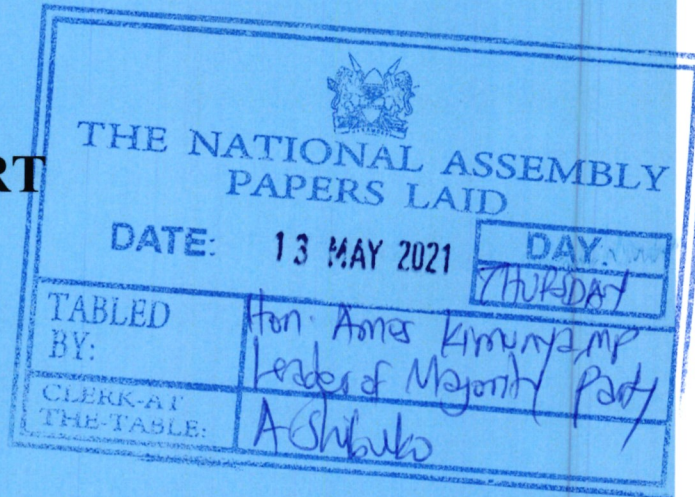 RT
THE NATIONAL ASSEMBLY
PAPERS LAID
DATE: 13 MAY 2021
DAY.
THURSDAY
TABLED
BY:
Hon. Amos Kimunya, MP
Leader of Majority Party
CLERK-AT
THE-TABLE:
A Shibuko